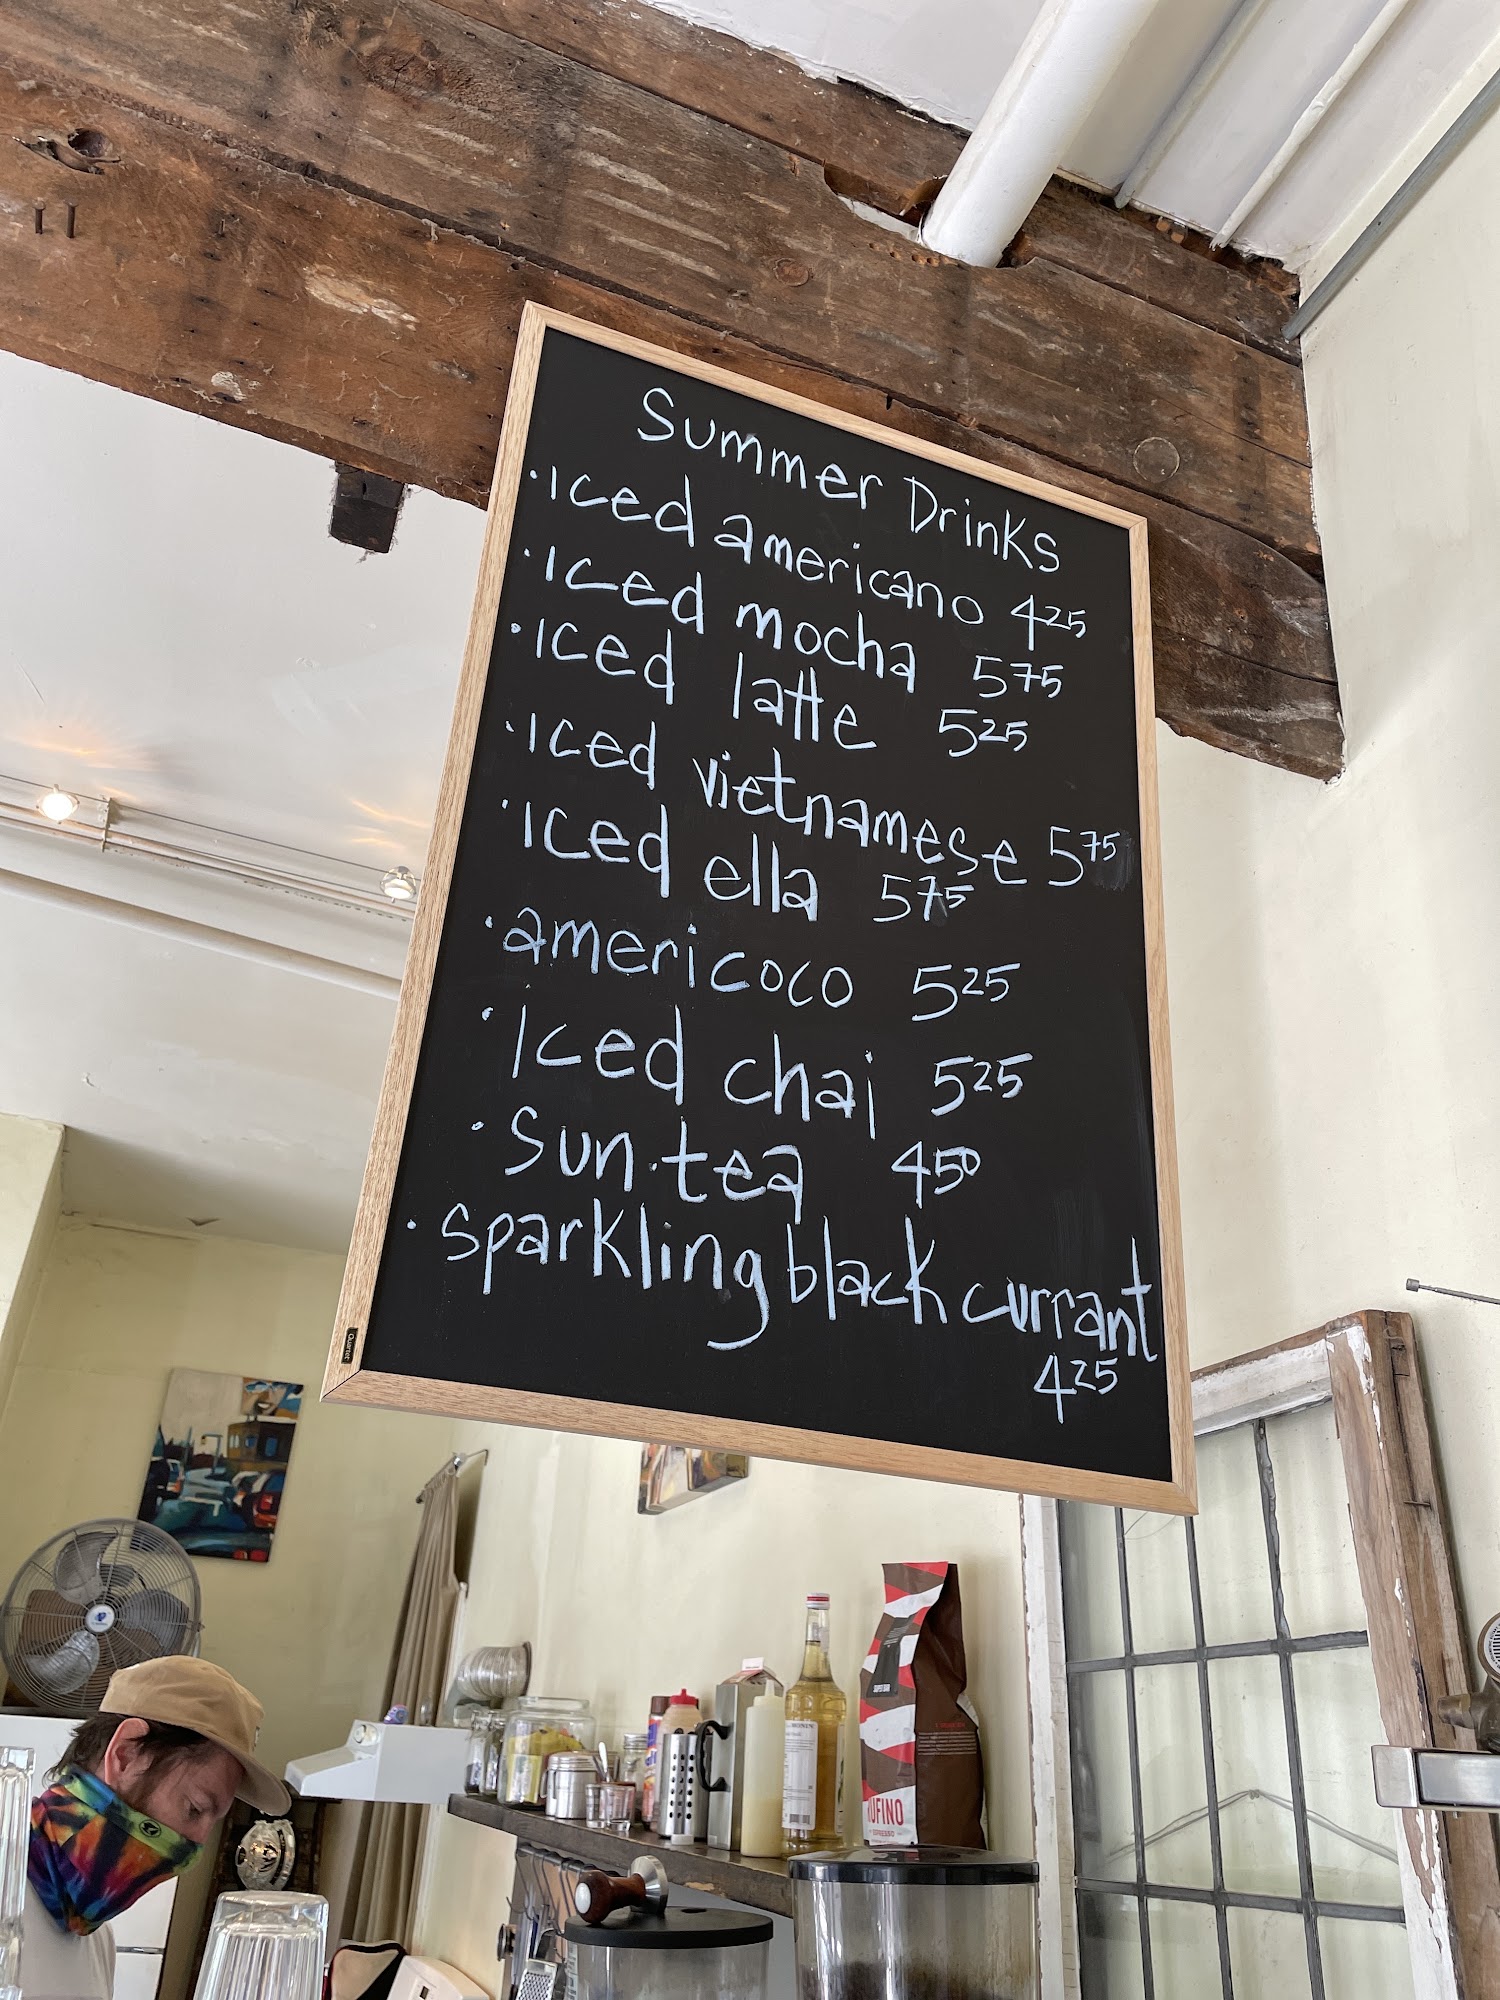 Summer Drinks
• Iced americano 4 25
• Iced mocha 5 75
• Iced latte 5 25
• Iced vietnamese 5 75
• Iced ella 5 75
• americoco 5 25
• Iced chai 5 25
• Sun•tea 4 50
• sparkling black currant
4 25
Quartet
UFINO
ESPRESSO